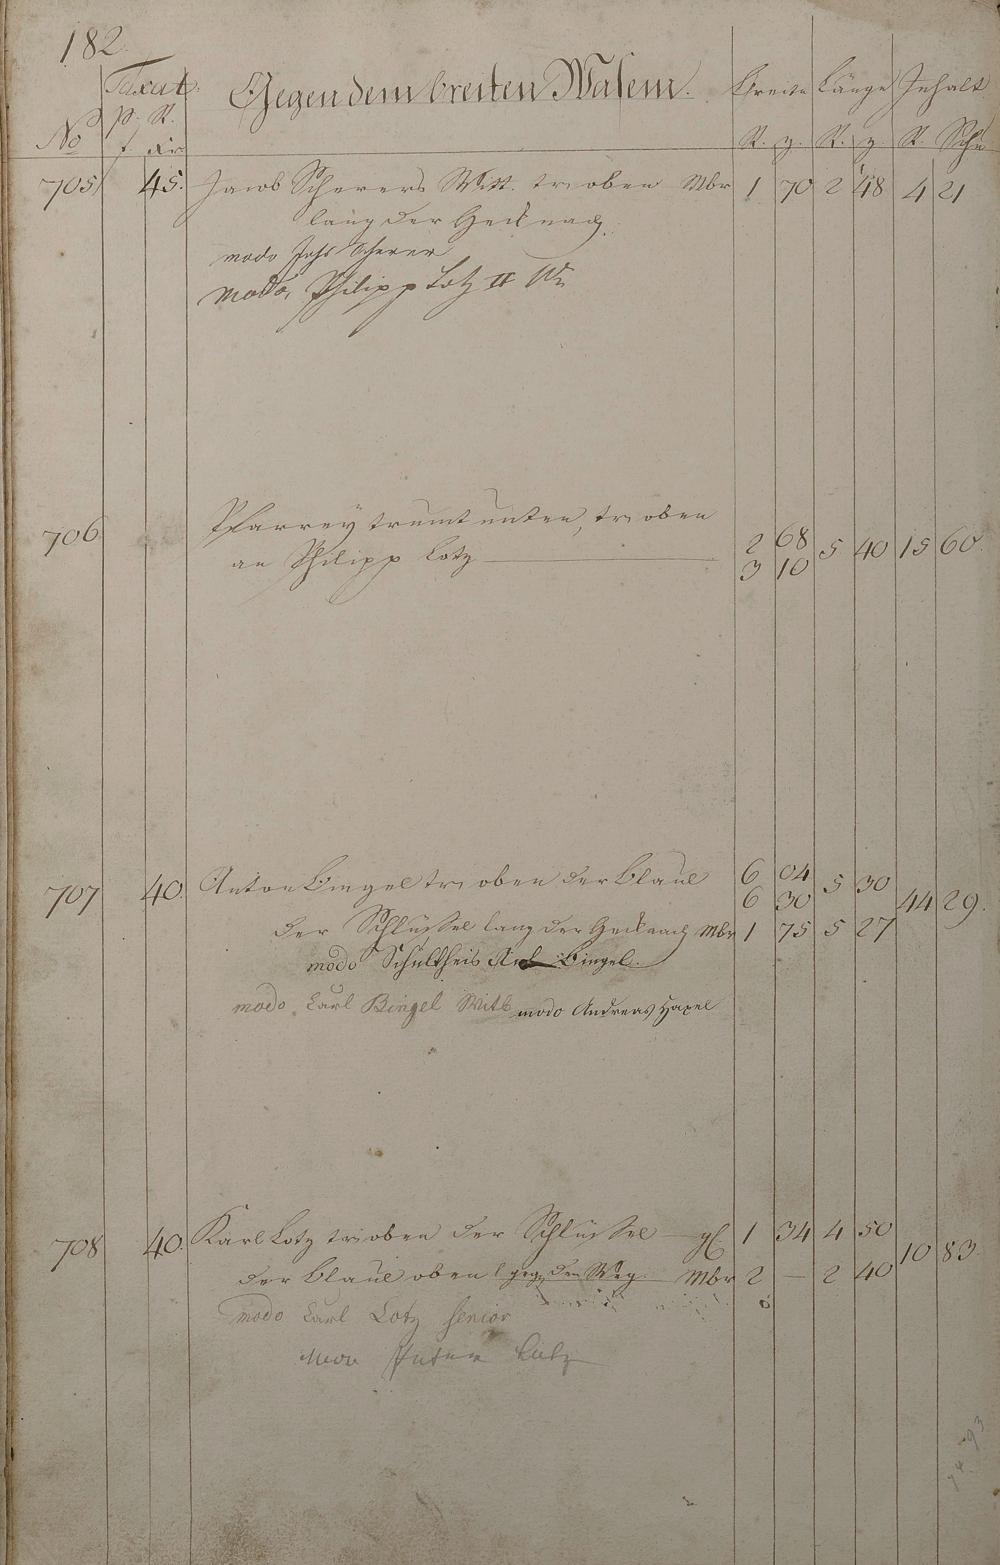 182.
Taxat. Gegen dem breiten Wasem. Breite Länge Inhalt
No p. R. R. z. R. z. R. Schu
f xr
705 45. Jacob Scherers Witt. tr: oben Mbr 1 70 2 48 4 21
lang der Hecknach.
modo Johs Scherer
modo, Philipp Lotz II
706 Pfarrey trumt unten, tr: oben 2 68 5 40 15 60.
an Philipp Lotz 3 10
707 40. Anton Bingel tr: oben der 6 04 5 30 44 29.
6 30
der Schlüssel lang der Hecknach Mbr 1 75 5 27
modo Schultheis Bingel.
modo. Carl Bingel Witb modo Andreas Hapel
708 40. Karl Lotz tr: oben der Schlüssel 1 34 4 50 10 83.
der oben gegen den Weg. Mbr 2 — 2 40
modo Carl Lotz senior
modo Lotz